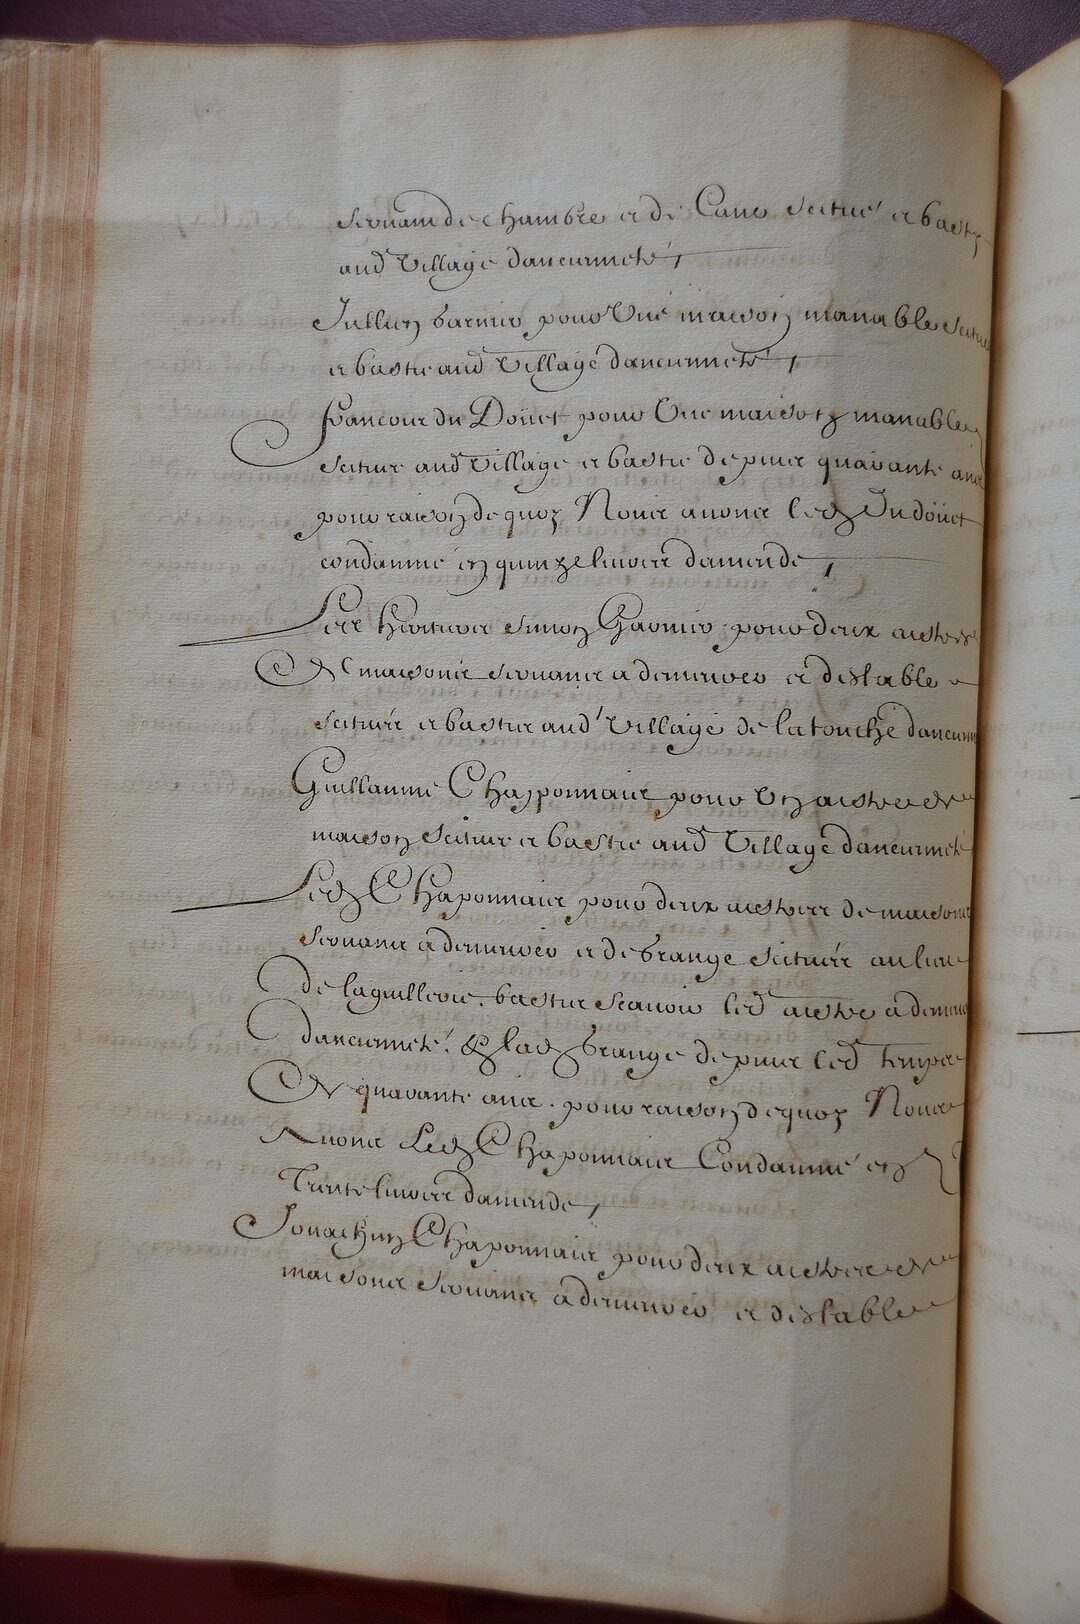 servant de chambre et de Cave scitué et basty
aud Village dancienneté,
Jullien barnier pour Une maison manable scitue
et bastie aud Village danciennete,
francois du Doüet pour Une maison manable
scituee aud Village et bastie depuis quarante ans
pour raison de quoy Nous avons led Du doüet
condamné en quinze livres damende,
Les heritiers simon Garnier pour deux aistres
De maisons servans a demeurer et destable
scitués et basties aud Village de la touche dancienn
Guillaume Chapponnais pour Un aistre de
maison scituee et bastie aud Village danciennete
Led Chaponnais pour deux aistres de maisons
servans a demeurer et de Grange scitués au lieu
de laguillerie. basties scavoir led aistre a demeurer
danciennete. & lad Grange depuis led temps
De quarante ans. pour raison de quoy Nous
Avons Led Chaponnais Condamné en
Trente livres damende,
Jouachin Chaponnais pour deux aistres de
maisons servans a demeurer et destable